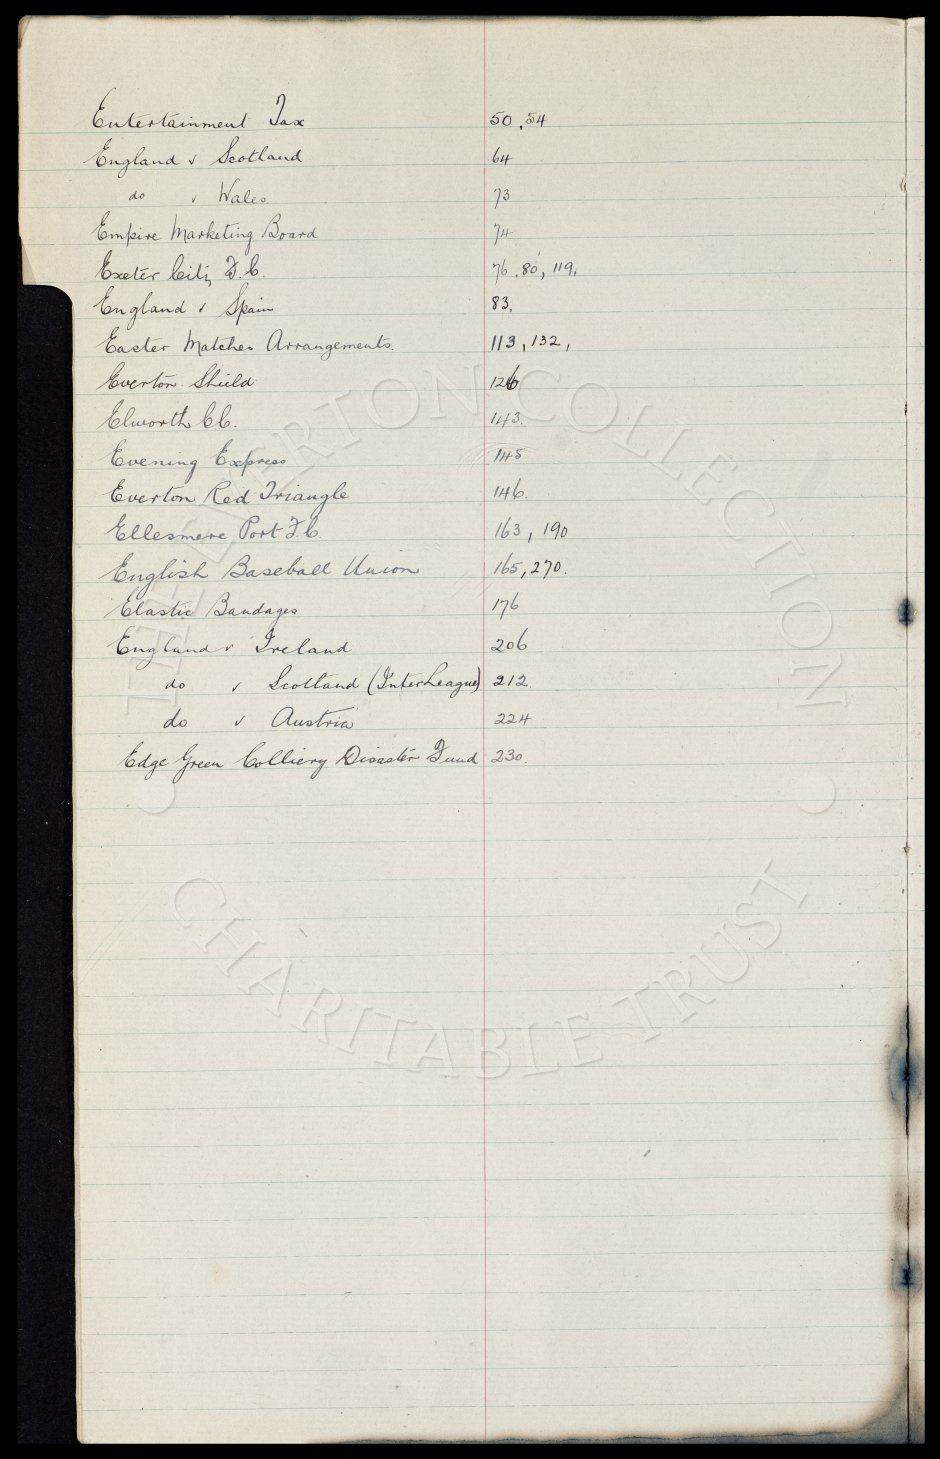 Entertainment Tax 50, 54
England v Scotland 64
do v Wales 73
Empire Marketing Board 74
Exeter City F.C. 76, 80, 119,
England v Spain 83.
Easter Matches Arrangements. 113, 132,
Everton Shield 126
Elworth C.C. 143.
Evening Express 145
Everton Red Triangle 146.
Ellesmere Port F.C. 163, 190
English Baseball Union 165, 270.
Elastic Bandages 176
England v Ireland 206
do v Scotland (InterLeague) 212
do v Austria 224
Edge Green Colliery Disaster Fund 230.
THE EVERTON COLLECTION
CHARITABLE TRUST